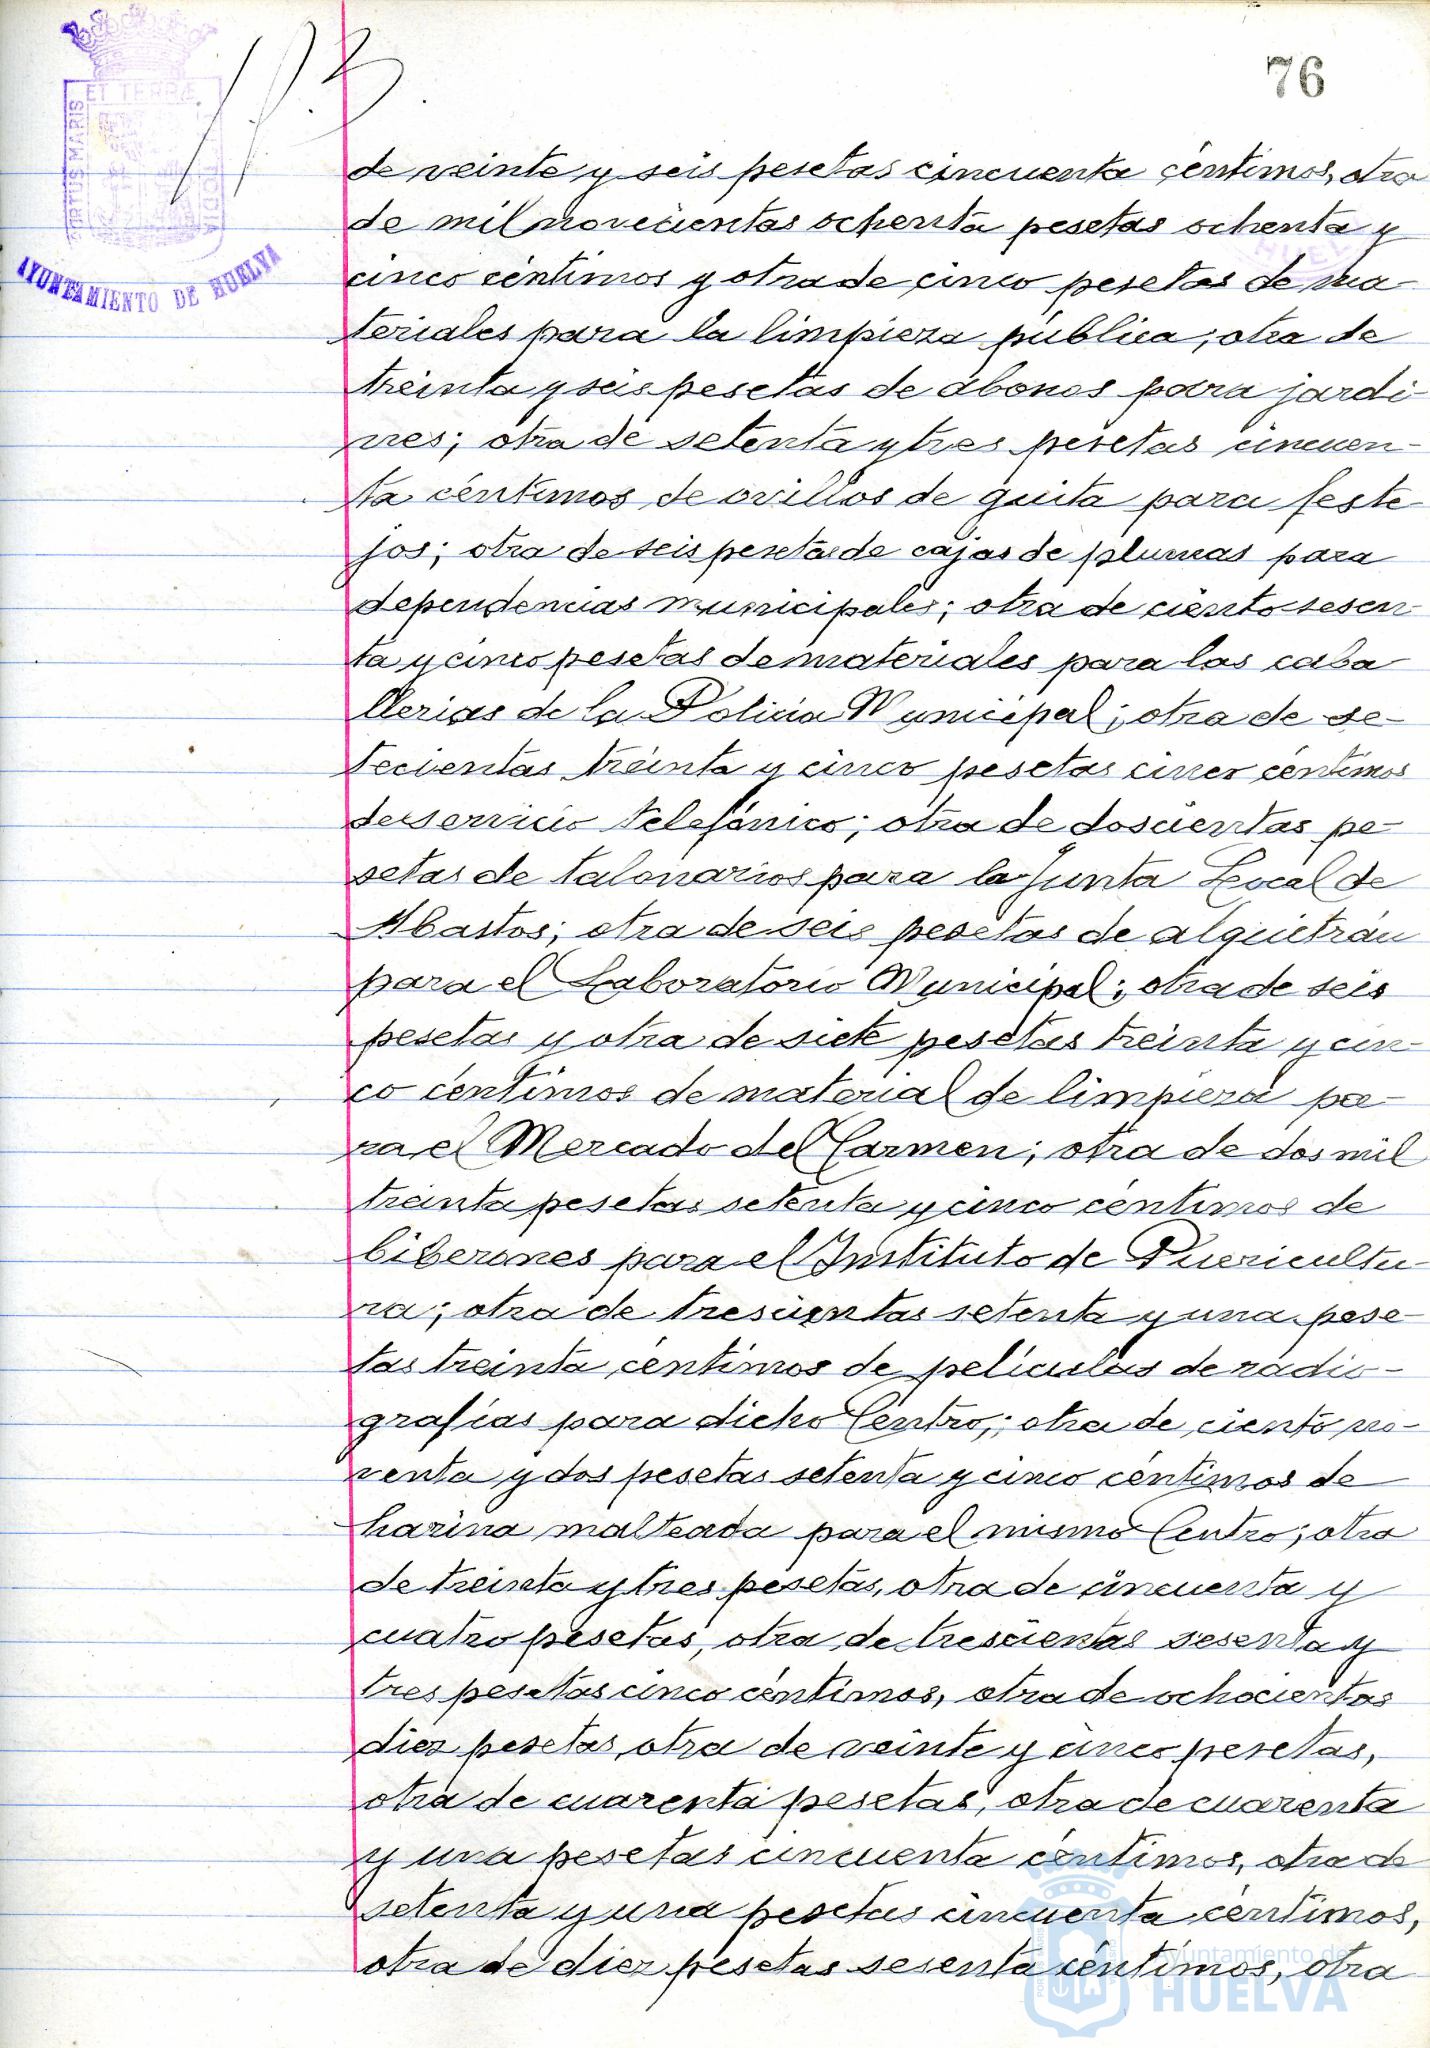 76
ET TERRÆ
AYUNTAMIENTO DE HUELVA
de veinte y seis pesetas cincuenta céntimos, otra
de mil novecientas ochenta pesetas ochenta y
cinco céntimos y otra de cinco pesetas de ma-
teriales para la limpieza pública; otra de
treinta y seis pesetas de abonos para jardi-
nes; otra de setenta y tres pesetas cincuen-
ta céntimos de ovillos de guita para feste-
jos; otra de seis pesetas de cajas de plumas para
dependencias municipales; otra de ciento sesen-
ta y cinco pesetas de materiales para las caba
llerias de la Policia Municipal; otra de se-
tecientas treinta y cinco pesetas cinco céntimos
de servicio telefónico; otra de doscientas pe-
setas de talonarios para la Junta Local de
Abastos; otra de seis pesetas de alquitrán
para el Laboratorio Municipal; otra de seis
pesetas y otra de siete pesetas treinta y cin-
co céntimos de material de limpieza pa-
ra el Mercado del Carmen; otra de dos mil
treinta pesetas setenta y cinco céntimos de
biberones para el Instituto de Puericultu-
ra; otra de trescientas setenta y una pese-
tas treinta céntimos de películas de radio-
grafías para dicho Centro; otra de ciento no-
venta y dos pesetas setenta y cinco céntimos de
harina malteada para el mismo Centro; otra
de treinta y tres pesetas, otra de cincuenta y
cuatro pesetas, otra de trescientas sesenta y
tres pesetas cinco céntimos, otra de ochocientas
diez pesetas, otra de veinte y cinco pesetas,
otra de cuarenta pesetas, otra de cuarenta
y una pesetas cincuenta céntimos, otra de
setenta y una pesetas cincuenta céntimos,
otra de diez pesetas sesenta céntimos, otra
Ayuntamiento de
HUELVA